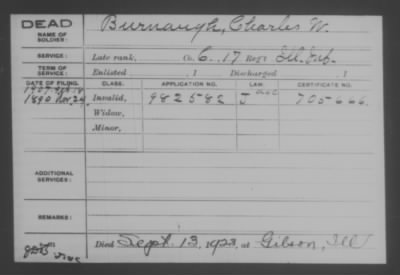 DEAD
NAME OF SOLDIER: Burnaugh, Charles W.
SERVICE: Late rank, Co. C, 17 Reg't Ill. Inf.
TERM OF SERVICE: Enlisted , 1 Discharged , 1
DATE OF FILING. CLASS. APPLICATION NO. LAW. CERTIFICATE NO.
1890 Nov. 24 Invalid, 982582 J 705666
Widow,
Minor,
ADDITIONAL SERVICES:
REMARKS:
Died Sept. 13, 1923, at Gibson, Ill